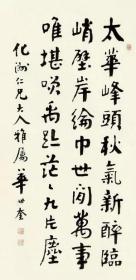 太華峰頭秋氣新醉臨
峭壁岸綸巾世間萬事
唯堪咲禹跡茫〻九片塵
仁兄大人雅屬 華世奎